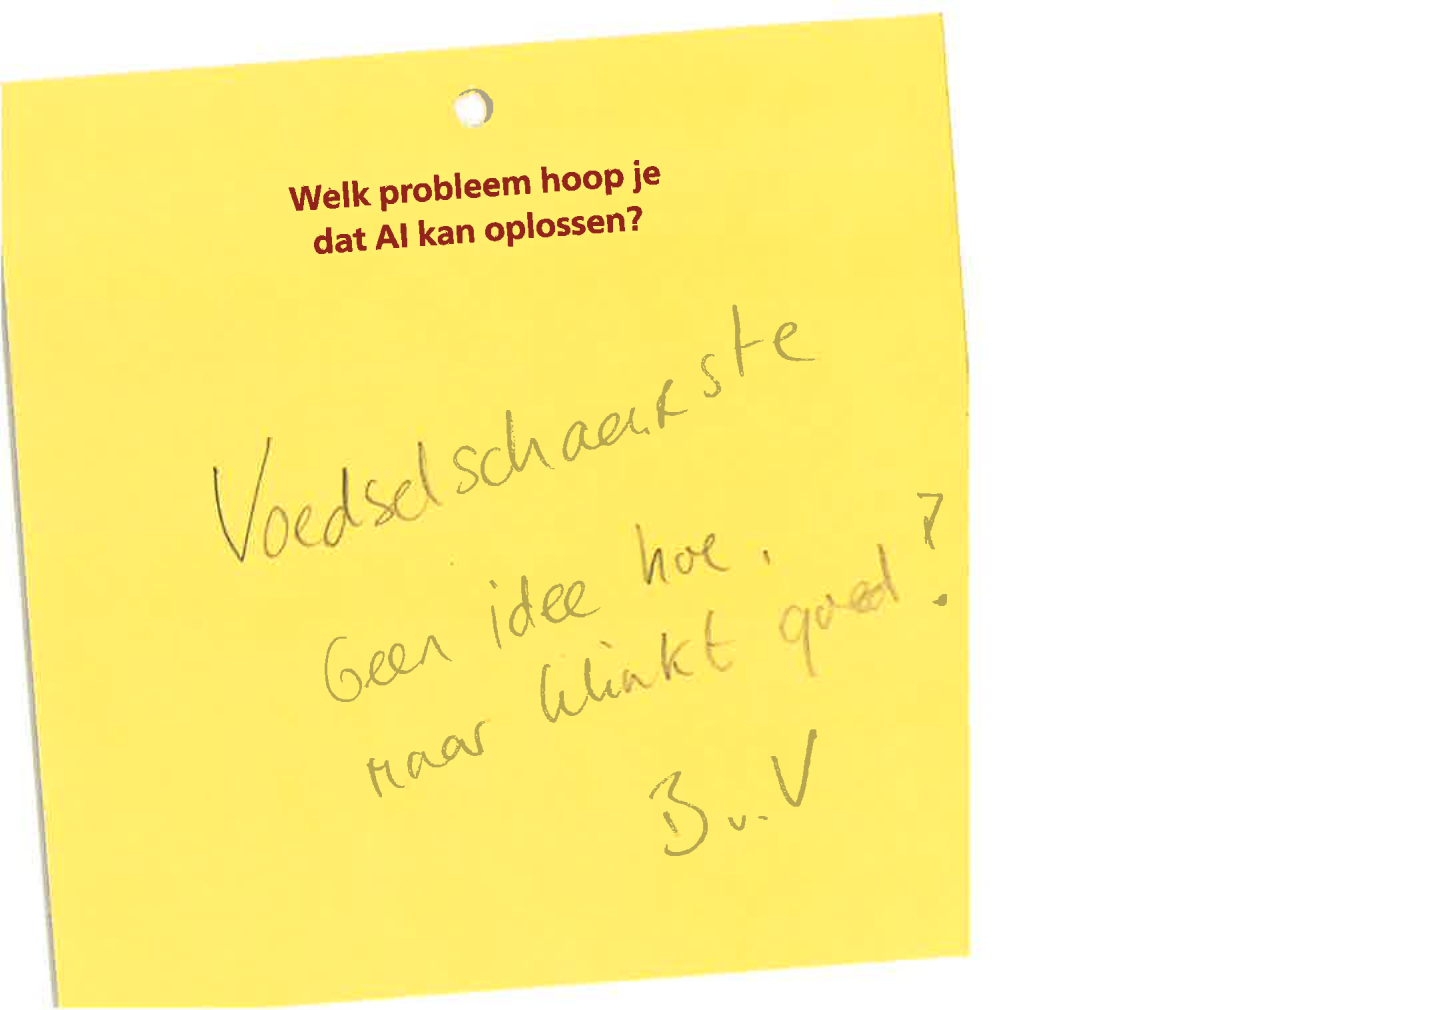 Welk probleem hoop je
dat AI kan oplossen?
Voedselschaarste
Geen idee hoe,
maar klinkt goed?
B v. V